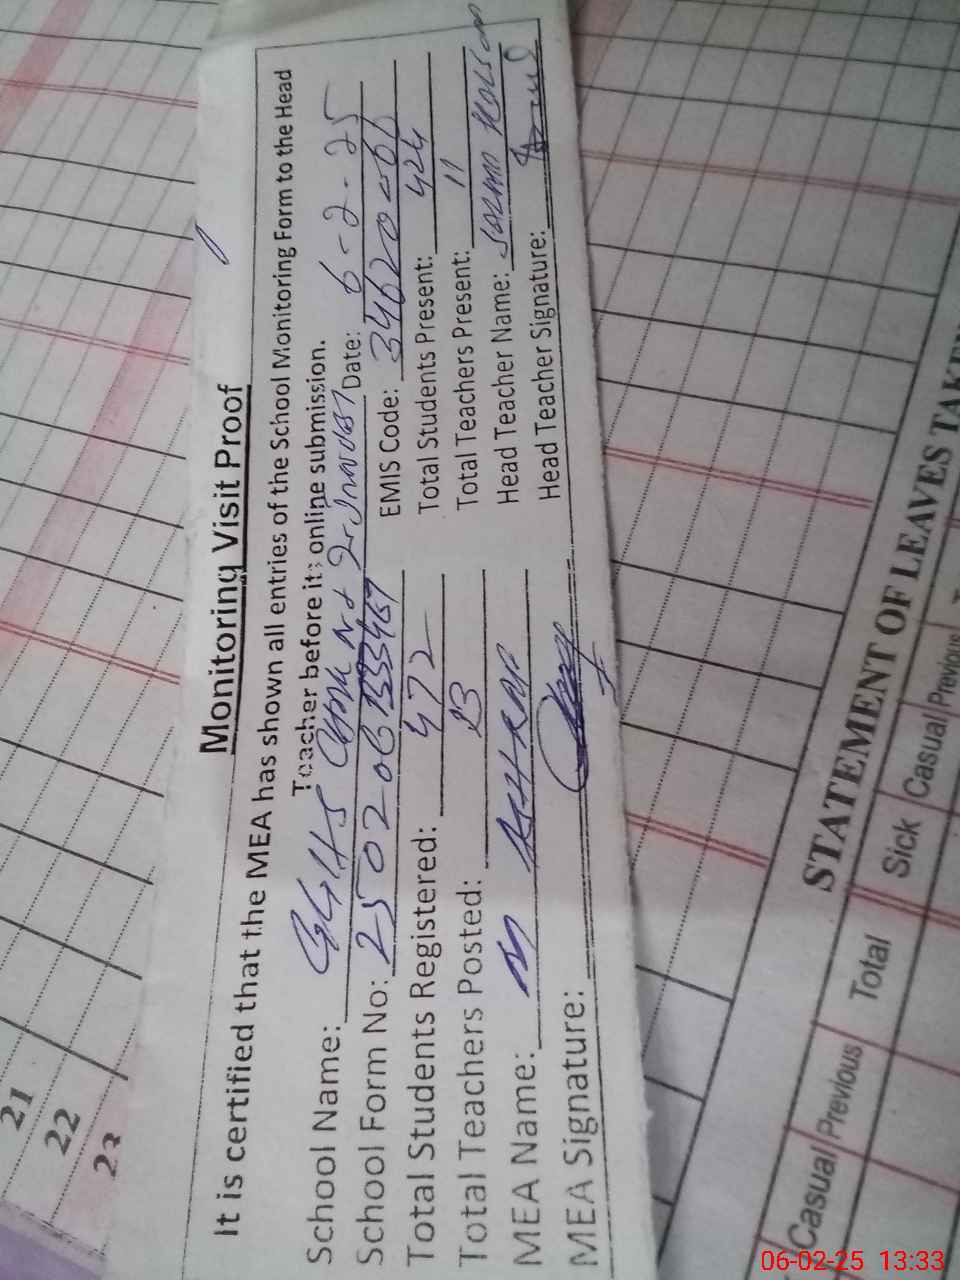 Monitoring Visit Proof
It is certified that the MEA has shown all entries of the School Monitoring Form to the Head
Teacher before its online submission.
School Name: GGHS No 2 Date: 6-2-25
School Form No: EMIS Code:
Total Students Registered: 472 Total Students Present: 424
Total Teachers Posted: 13 Total Teachers Present: 11
MEA Name: M ASHRAF Head Teacher Name:
MEA Signature: Head Teacher Signature:
21
22
23
STATEMENT OF LEAVES TAKEN
Casual Previous Total Sick Casual Previous
06-02-25 13:33